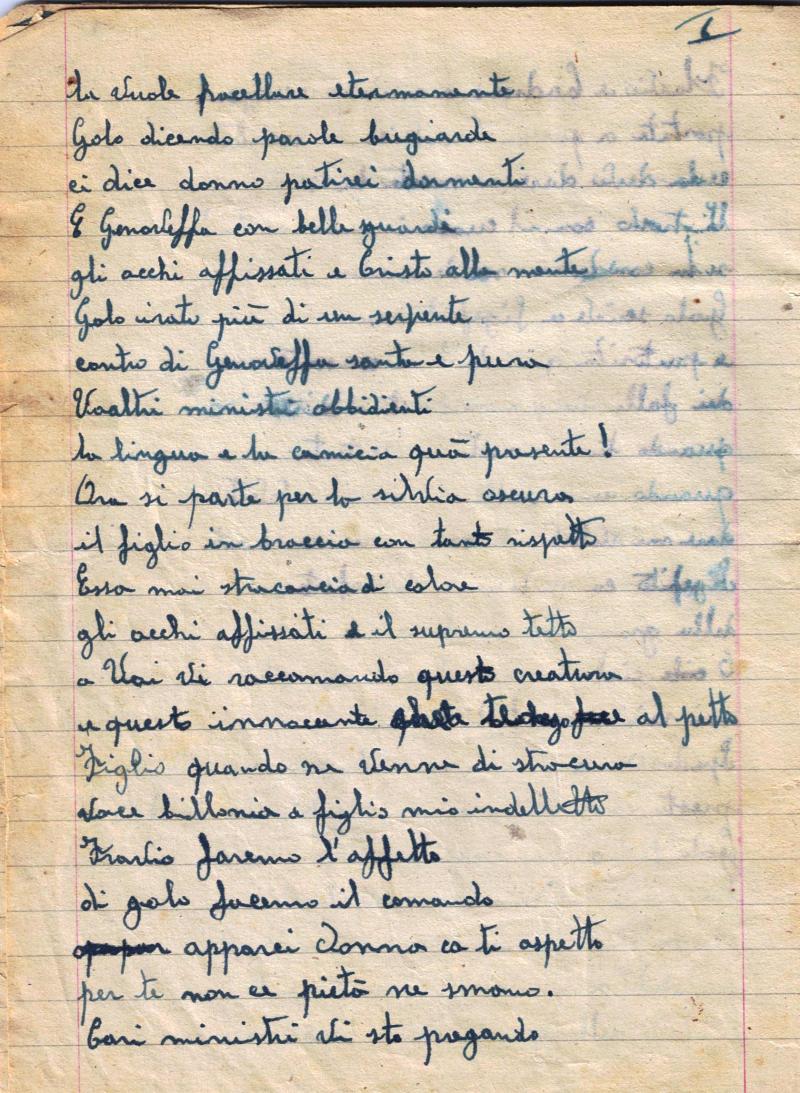 I
la vuole pacellare etermamente
Golo dicendo parole bugiarde
ci dice donno patirei dormenti
E Genoveffa con belle sguardi
gli occhi affissati e Cristo alla mente
Golo irato più di un serpente
contro di Genoveffa santa e pura
Voaltri ministri obbidienti
la lingua e la camicia quà presente!
Ora si parte per la silvia oscura
il figlio in braccia con tanto rispetto
Essa mai stracancia di colore
gli occhi affissati e il supremo tetto
a Voi vi raccomando questa creatura
e questo innocente al petto
Figlio quando ne venne di stracura
voce billonia a figlio mio indelletto
Fravio faremo l'affetto
di golo facemo il comando
apparei donna ca ti aspetto
per te non ce pietà ne smano.
Cari ministri vi sto pregando